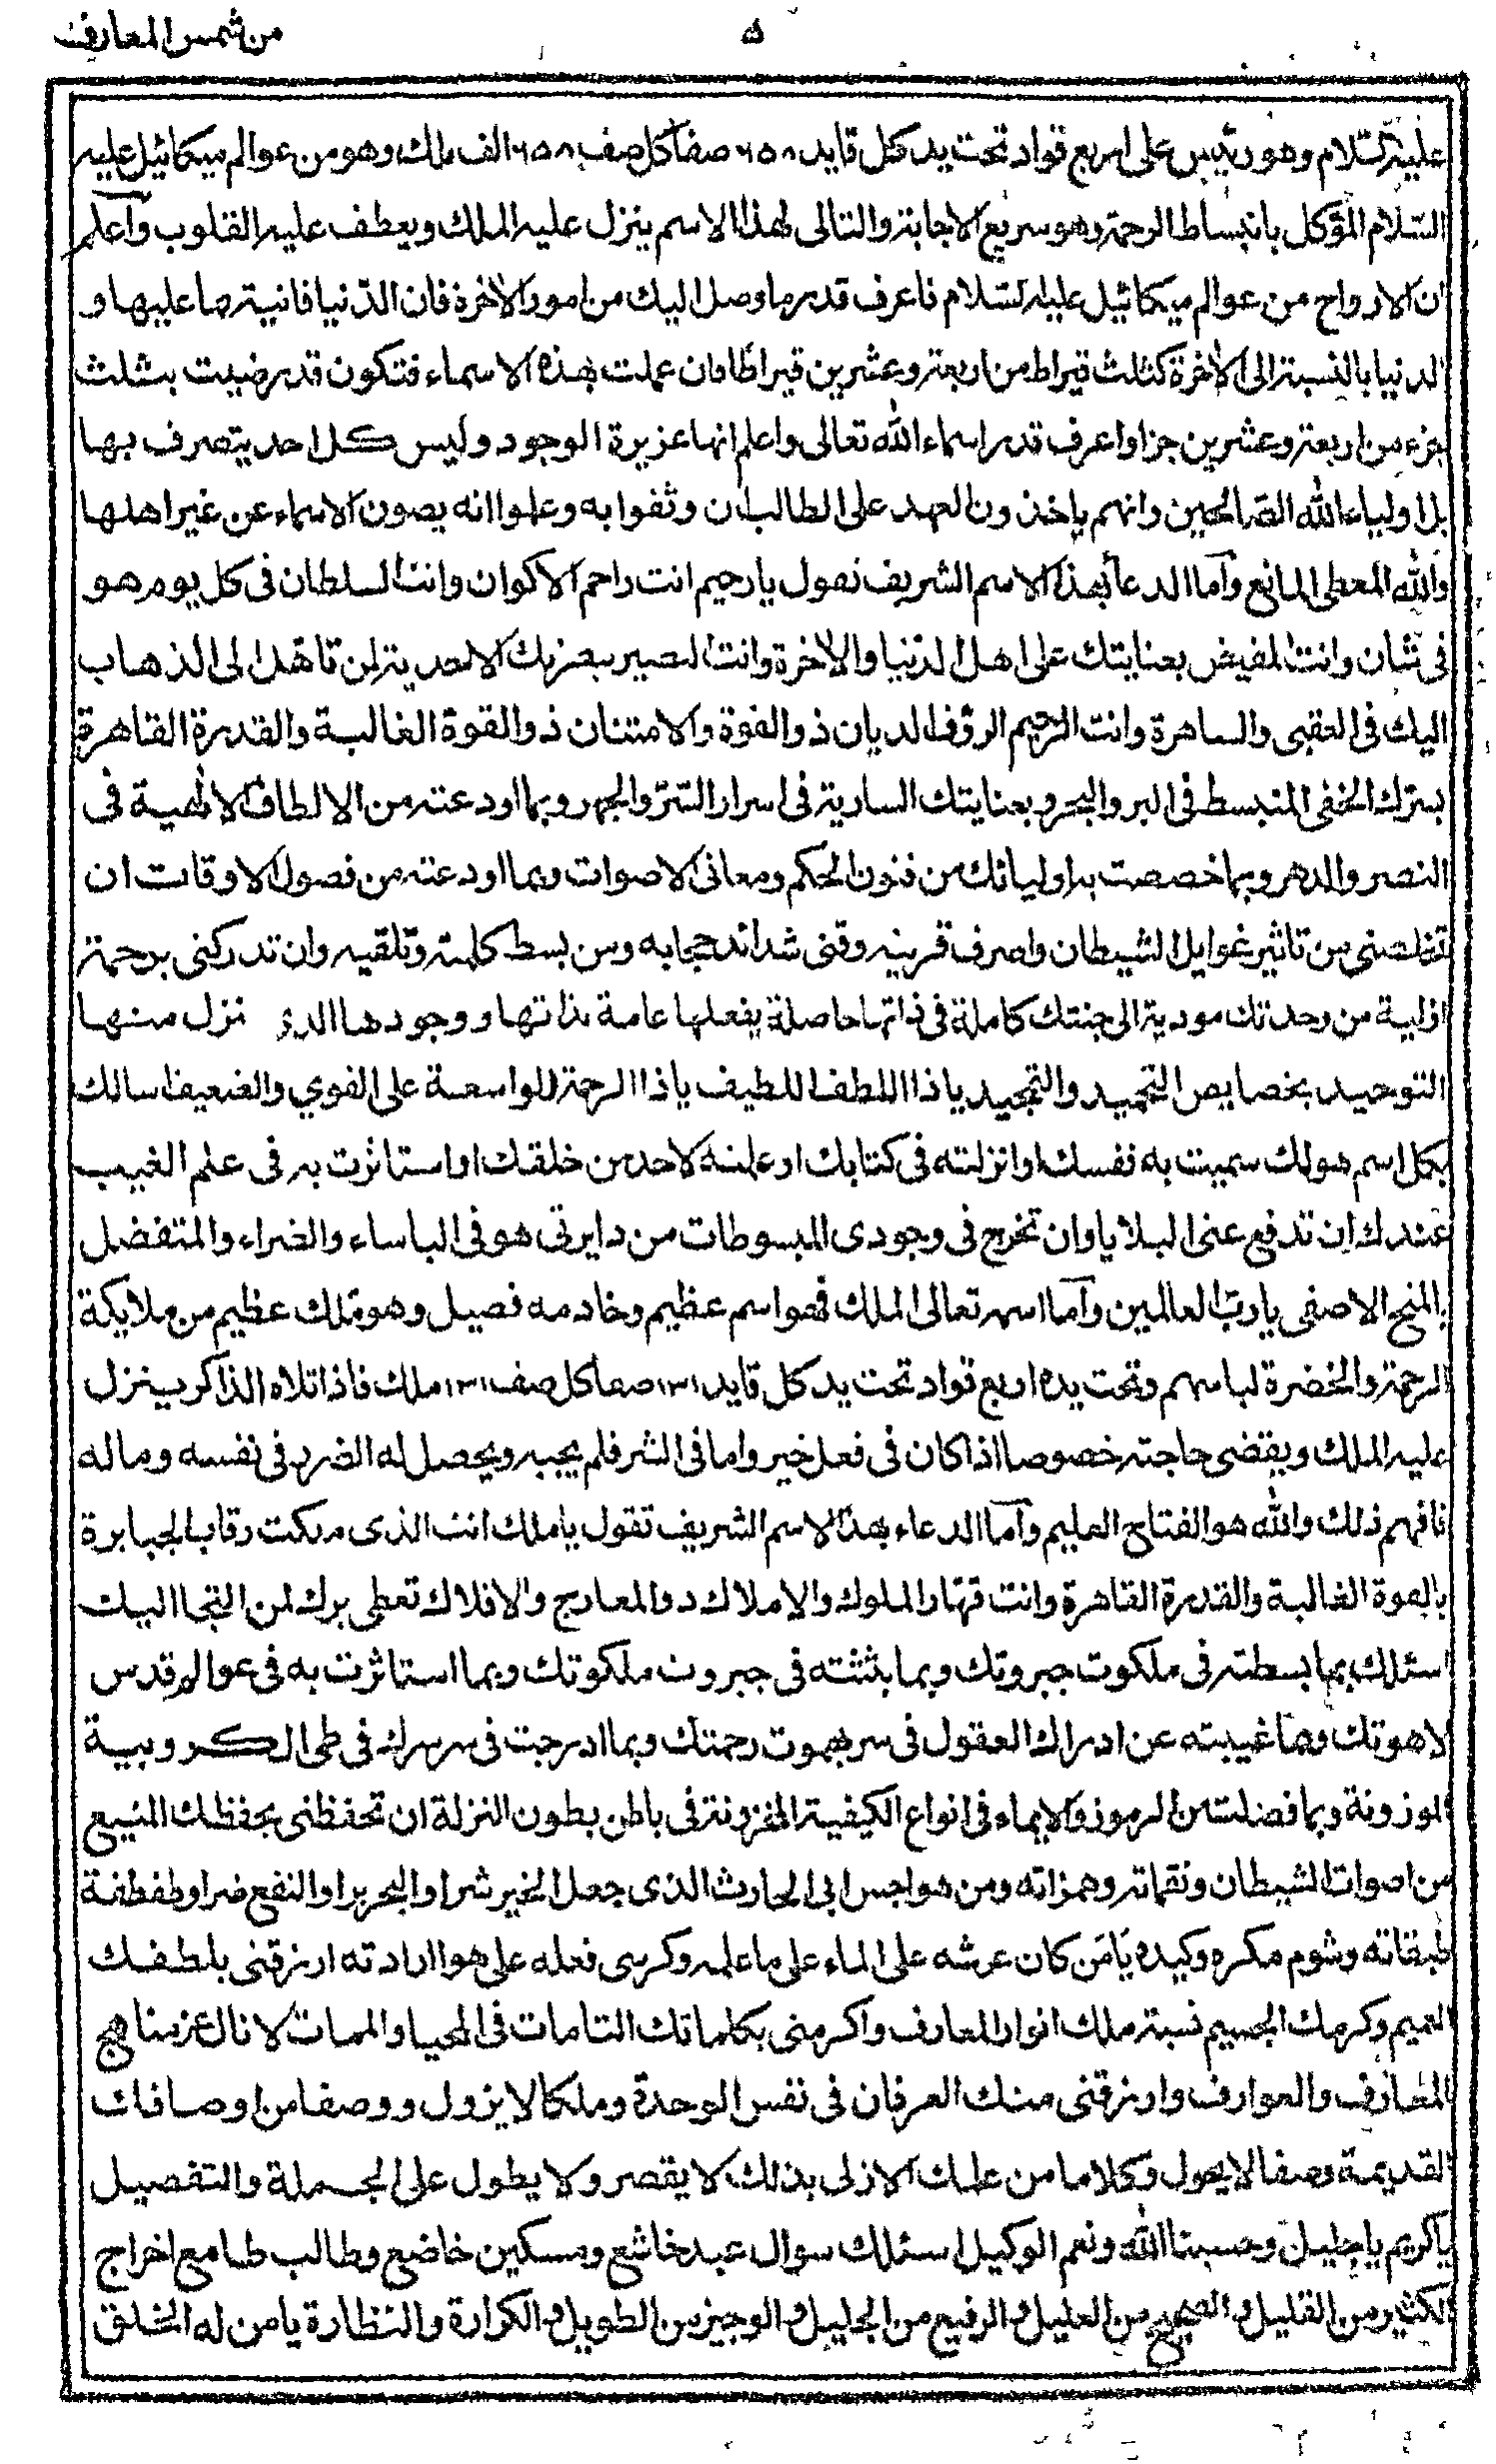 من شمس المعارف
٥
عليه السلام وهو رئيس على اربع قواد تحت يد كل قايد ٢٥٨ صفا كل صف ٢٥٨ الف ملك وهو من عوالم ميكائيل عليه
السلام المؤكل بانبساط الرحمة وهو سريع الاجابة والتالى لهذا الاسم ينزل عليه الملك ويعطف عليه القلوب وآعلم
ان الارواح من عوالم ميكائيل عليه السلام فاعرف قدر ما وصل اليك من امور الاخرة فان الدنيا فانية بما عليها و
الدنيا بالنسبة الى الاخرة كثلث قيراط من اربعة وعشرين قيراطا فان عملت بهذه الاسماء فتكون قد رضيت بثلث
جزء من اربعة وعشرين جزا واعرف قدر اسماء الله تعالى واعلم انها عزيزة الوجود وليس كل احد يتصرف بها
بل اولياء الله الصالحين وانهم ياخذون العهد على الطالب ان وثقوا به وعلموا انه يصون الاسماء عن غير اهلها
والله المعطى المانع وآما الدعا بهذا الاسم الشريف تقول يا رحيم انت راحم الاكوان وانت السلطان فى كل يوم هو
فى شان وانت المفيض بعنايتك على اهل الدنيا والاخرة وانت البصير ببصرك الاحدية لمن تاهل الى الذهاب
اليك فى العقبى والساهرة وانت الرحيم الرؤف الديان ذو القوة والامتنان ذو القوة الغالبة والقدرة القاهرة
بسرك الخفى المنبسط فى البر والبحر وبعنايتك السارية فى اسرار السر والجهر وبما اودعته من الالطاف الالهية فى
النصر والدهر وبما خصصت به اوليائك من فنون الحكم ومعانى الاصوات وبما اودعته من فصول الاوقات ان
تخلصنى من تاثير غوايل الشيطان واصرف قرينه وقنى شدائد حجابه ومن بسط كلمته وتلقيه وان تدركنى برحمة
ازلية من وحدتك مودية الى جنتك كاملة فى ذاتها حاصلة بفعلها عامة بذاتها ووجودها الذى نزل منها
التوحيد بخصايص التحميد والتمجيد يا ذا اللطف اللطيف يا ذا الرحمة الواسعة على القوي والضعيف اسالك
بكل اسم هو لك سميت به نفسك او انزلته فى كتابك او علمته لاحد من خلقك او استاثرت به فى علم الغيب
عندك ان تدفع عنى البلايا وان تخرج فى وجودى المبسوطات من دايرتى هو فى الباساء والضراء والمتفضل
بالمنح الاصفى يا رب العالمين وآما اسمه تعالى الملك فهو اسم عظيم وخادمه فصيل وهو ملك عظيم من ملايكة
الرحمة والخضرة لباسهم وتحت يده اربع قواد تحت يد كل قايد ١٣١ صفا كل صف ١٣١ ملك فاذا تلاه الذاكر ينزل
عليه الملك ويقضى حاجته خصوصا اذا كان فى فعل خير واما فى الشر فلم يجبه ويحصل له الضرر فى نفسه وماله
فافهم ذلك والله هو الفتاح العليم وآما الدعاء بهذا الاسم الشريف تقول يا ملك انت الذى ملكت رقاب الجبابرة
بالقوة الغالبة والقدرة القاهرة وانت قهار الملوك والاملاك ذو المعارج والافلاك تعطى برك لمن التجا اليك
اسئلك بما بسطته فى ملكوت جبروتك وبما بثثته فى جبروت ملكوتك وبما استاثرت به فى عوالم قدس
لاهوتك وبما غيبته عن ادراك العقول فى سر رحمتك وبما ادرجت فى سر سرك فى طى الكروبية
الموزونة وبما فضلت من الرموز والايماء فى انواع الكيفية المخزونة فى باطن بطون النزلة ان تحفظنى بحفظك المنيع
من اصوات الشيطان ونقماته وهمزاته ومن هواجس ابى الحارث الذى جعل الخير شرا والبحر برا والنفع ضرا وطفطفة
طبقاته وشوم مكره وكيده يا من كان عرشه على الماء على ما علمه وكرسى فعله على هوا ارادته ارزقنى بلطفك
العميم وكرمك الجسيم نسبة ملك انوار المعارف واكرمنى بكلماتك التامات فى المحيا والممات لانال عز مناهج
المعارف والعوارف وارزقنى منك العرفان فى نفس الوحدة وملكا لا يزول ووصفا من اوصافك
القديمة وصفا لا يحول وكلاما من علمك الازلى بذلك لا يقصر ولا يطول على الجملة والتفصيل
يا كريم يا جليل وحسبنا الله ونعم الوكيل اسئلك سوال عبد خاشع ومسكين خاضع وطالب طامع اخراج
الكثير من القليل والصحيح من العليل والرفيع من الجليل والوجيز من الطويل والكرارة والنظارة يا من له الخلق